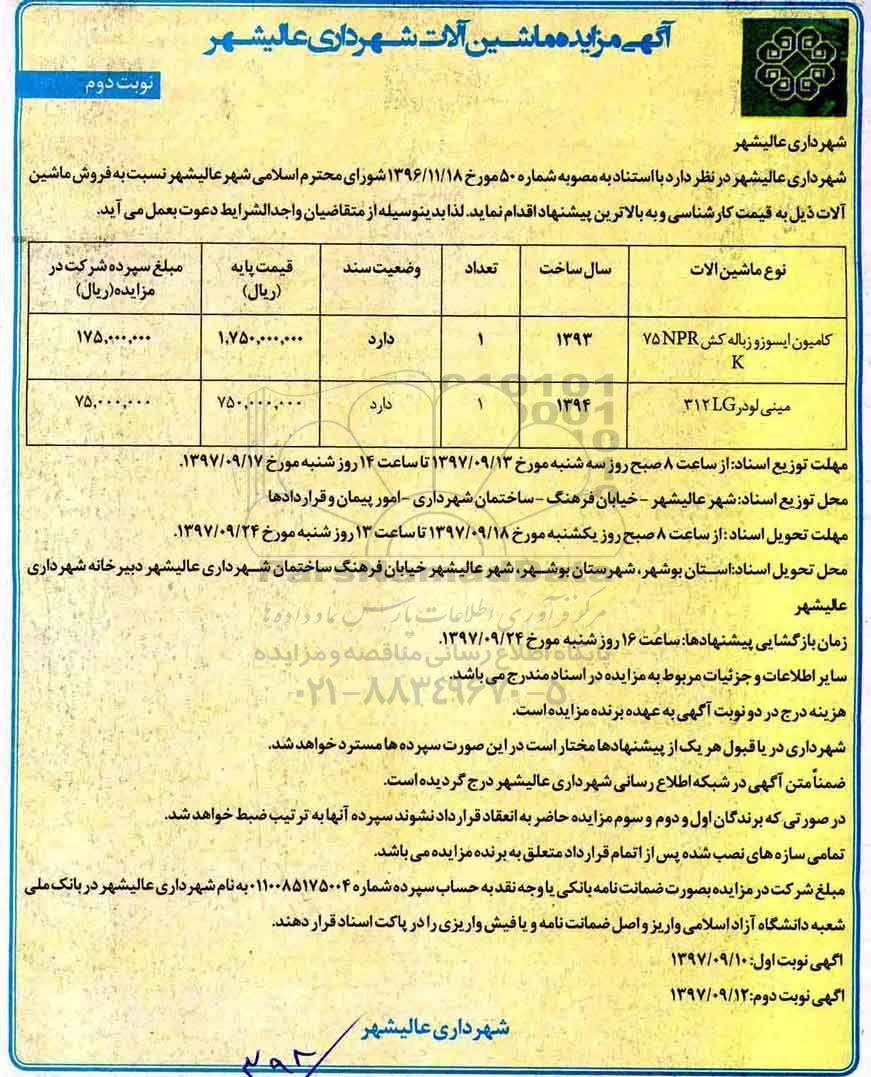 آگهی مزایده ماشین آلات شهرداری عالیشهر
نوبت دوم
شهرداری عالیشهر
شهرداری عالیشهر در نظر دارد با استناد به مصوبه شماره ۵۰ مورخ ۱۳۹۶/۱۱/۱۸ شورای محترم اسلامی شهر عالیشهر نسبت به فروش ماشین
آلات ذیل به قیمت کارشناسی و به بالاترین پیشنهاد اقدام نماید. لذا بدینوسیله از متقاضیان واجدالشرایط دعوت بعمل می آید.
نوع ماشین الات سال ساخت تعداد وضعیت سند قیمت پایه (ریال) مبلغ سپرده شرکت در مزایده(ریال)
کامیون ایسوزو زباله کش ۷۵NPR K ۱۳۹۳ ۱ دارد ۱,۷۵۰,۰۰۰,۰۰۰ ۱۷۵,۰۰۰,۰۰۰
مینی لودر ۳۱۲LG ۱۳۹۴ ۱ دارد ۷۵۰,۰۰۰,۰۰۰ ۷۵,۰۰۰,۰۰۰
مهلت توزیع اسناد: از ساعت ۸ صبح روز سه شنبه مورخ ۱۳۹۷/۰۹/۱۳ تا ساعت ۱۴ روز شنبه مورخ ۱۳۹۷/۰۹/۱۷.
محل توزیع اسناد: شهر عالیشهر - خیابان فرهنگ - ساختمان شهرداری - امور پیمان و قراردادها
مهلت تحویل اسناد: از ساعت ۸ صبح روز یکشنبه مورخ ۱۳۹۷/۰۹/۱۸ تا ساعت ۱۳ روز شنبه مورخ ۱۳۹۷/۰۹/۲۴.
محل تحویل اسناد: استان بوشهر، شهرستان بوشهر، شهر عالیشهر خیابان فرهنگ ساختمان شهرداری عالیشهر دبیرخانه شهرداری
عالیشهر
مرکز فرآوری اطلاعات پارس نماد داده ها
زمان بازگشایی پیشنهادها: ساعت ۱۶ روز شنبه مورخ ۱۳۹۷/۰۹/۲۴.
پایگاه اطلاع رسانی مناقصه و مزایده
سایر اطلاعات و جزئیات مربوط به مزایده در اسناد مندرج می باشد.
۰۲۱-۸۸۳۴۹۶۷۰-۵
هزینه درج در دو نوبت آگهی به عهده برنده مزایده است.
شهرداری در یا قبول هر یک از پیشنهادها مختار است در این صورت سپرده ها مسترد خواهد شد.
ضمناً متن آگهی در شبکه اطلاع رسانی شهرداری عالیشهر درج گردیده است.
در صورتی که برندگان اول و دوم و سوم مزایده حاضر به انعقاد قرارداد نشوند سپرده آنها به ترتیب ضبط خواهد شد.
تمامی سازه های نصب شده پس از اتمام قرارداد متعلق به برنده مزایده می باشد.
مبلغ شرکت در مزایده بصورت ضمانت نامه بانکی یا وجه نقد به حساب سپرده شماره ۰۱۱۰۰۸۵۱۷۵۰۰۴ به نام شهرداری عالیشهر در بانک ملی
شعبه دانشگاه آزاد اسلامی واریز و اصل ضمانت نامه و یا فیش واریزی را در پاکت اسناد قرار دهند.
اگهی نوبت اول: ۱۳۹۷/۰۹/۱۰
اگهی نوبت دوم: ۱۳۹۷/۰۹/۱۲
شهرداری عالیشهر
۳۹۲